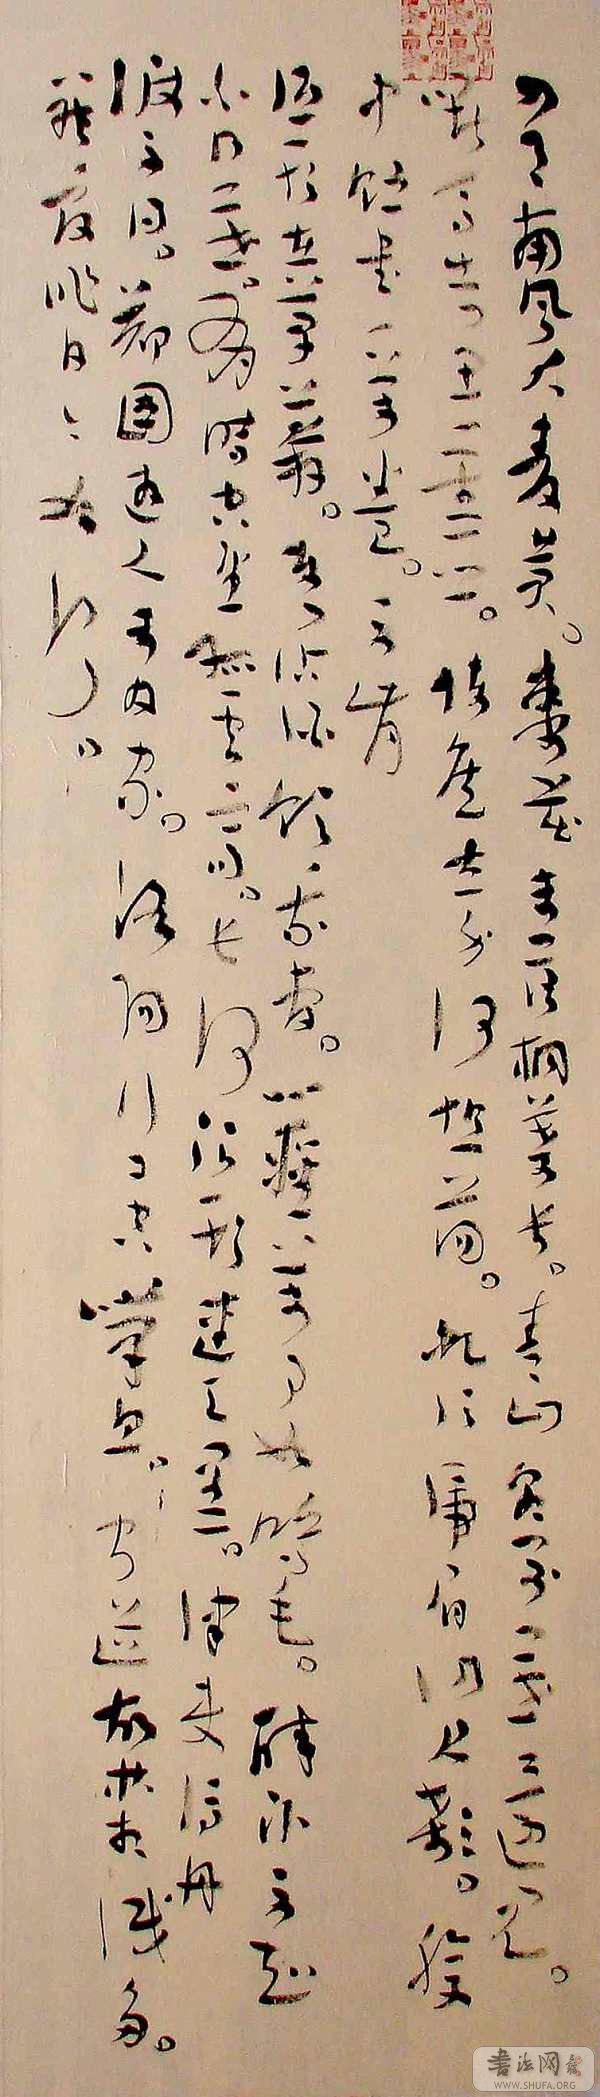 四月南风大麦黄。枣花未落桐叶长。青山朝别暮还见。
嘶马出门思旧乡。陈侯立身何坦荡。虬须虎眉仍大颡。腹
中贮书一万卷。不肯
低头在草莽。东门沽酒饮我曹。心轻万事如鸿毛。醉卧不知
白日暮。有时空望孤云高。长河浪头连天黑。津吏停舟
渡不得。郑国游人未及家。洛阳行子空叹息。闻道故林相识多。
罢官昨日今如何。
書法网
WWW.SHUFA.ORG